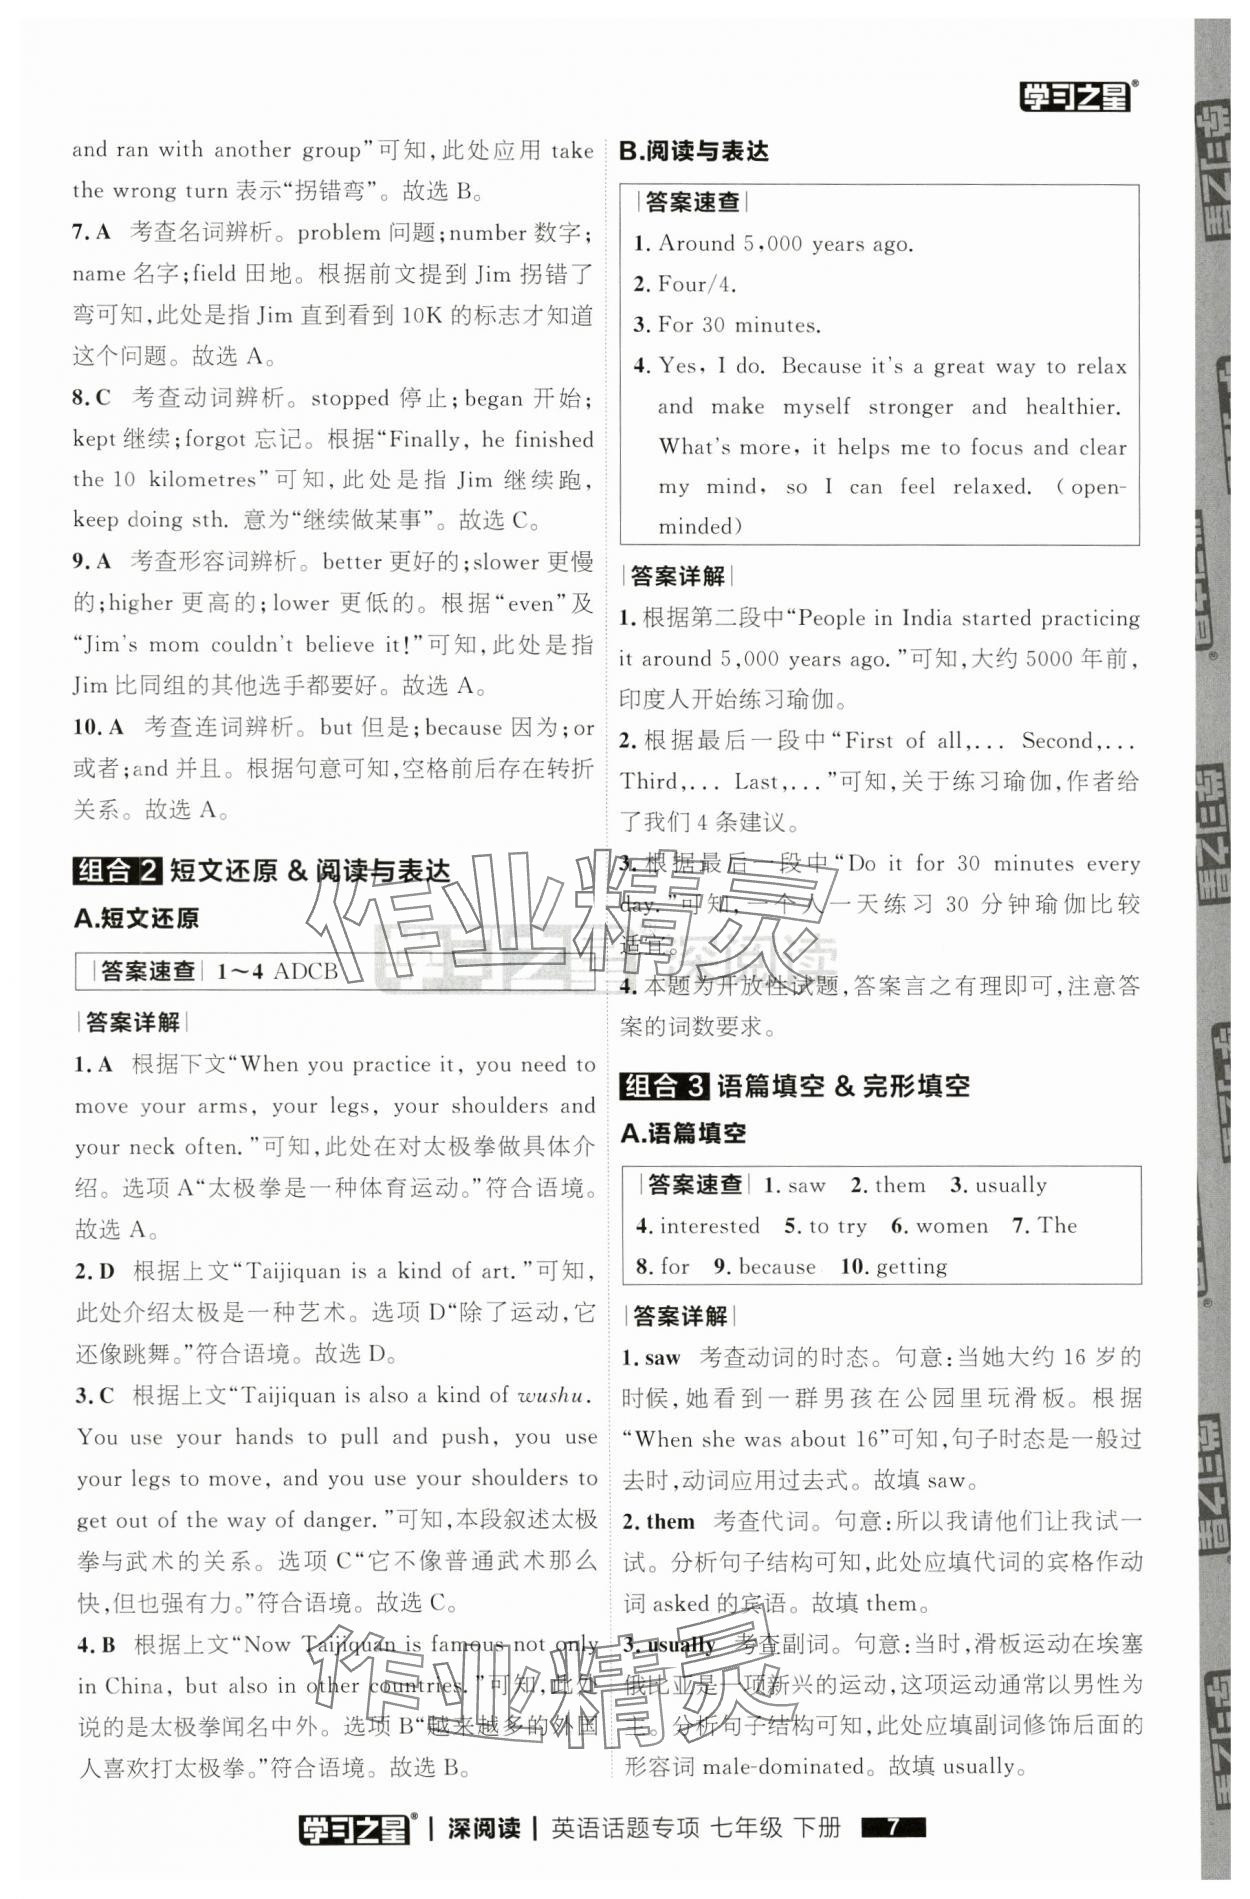 学习之星®
and ran with another group”可知,此处应用 take
the wrong turn 表示“拐错弯”。故选 B。
7. A 考查名词辨析。problem 问题;number 数字;
name 名字;field 田地。根据前文提到 Jim 拐错了
弯可知,此处是指 Jim 直到看到 10K 的标志才知道
这个问题。故选 A。
8. C 考查动词辨析。stopped 停止;began 开始;
kept 继续;forgot 忘记。根据“Finally, he finished
the 10 kilometres”可知,此处是指 Jim 继续跑,
keep doing sth. 意为“继续做某事”。故选 C。
9. A 考查形容词辨析。better 更好的;slower 更慢
的;higher 更高的;lower 更低的。根据“even”及
“Jim's mom couldn't believe it!”可知,此处是指
Jim 比同组的其他选手都要好。故选 A。
10. A 考查连词辨析。but 但是;because 因为;or
或者;and 并且。根据句意可知,空格前后存在转折
关系。故选 A。
组合 2 短文还原 & 阅读与表达
A.短文还原
|答案速查| 1~4 ADCB
|答案详解|
1. A 根据下文“When you practice it, you need to
move your arms, your legs, your shoulders and
your neck often.”可知,此处在对太极拳做具体介
绍。选项 A“太极拳是一种体育运动。”符合语境。
故选 A。
2. D 根据上文“Taijiquan is a kind of art.”可知,
此处介绍太极是一种艺术。选项 D“除了运动,它
还像跳舞。”符合语境。故选 D。
3. C 根据上文“Taijiquan is also a kind of wushu.
You use your hands to pull and push, you use
your legs to move, and you use your shoulders to
get out of the way of danger.”可知,本段叙述太极
拳与武术的关系。选项 C“它不像普通武术那么
快,但也强有力。”符合语境。故选 C。
4. B 根据上文“Now Taijiquan is famous not only
in China, but also in other countries.”可知,此处
说的是太极拳闻名中外。选项 B“越来越多的外国
人喜欢打太极拳。”符合语境。故选 B。
B.阅读与表达
|答案速查|
1. Around 5,000 years ago.
2. Four/4.
3. For 30 minutes.
4. Yes, I do. Because it's a great way to relax
and make myself stronger and healthier.
What's more, it helps me to focus and clear
my mind, so I can feel relaxed. (open-
minded)
|答案详解|
1. 根据第二段中“People in India started practicing
it around 5,000 years ago.”可知,大约 5000 年前,
印度人开始练习瑜伽。
2. 根据最后一段中“First of all,... Second,...
Third,... Last,...”可知,关于练习瑜伽,作者给
了我们 4 条建议。
3. 根据最后一段中“Do it for 30 minutes every
day.”可知,一个人一天练习 30 分钟瑜伽比较
适宜。
4. 本题为开放性试题,答案言之有理即可,注意答
案的词数要求。
组合 3 语篇填空 & 完形填空
A.语篇填空
|答案速查| 1. saw 2. them 3. usually
4. interested 5. to try 6. women 7. The
8. for 9. because 10. getting
|答案详解|
1. saw 考查动词的时态。句意:当她大约 16 岁的
时候,她看到一群男孩在公园里玩滑板。根据
“When she was about 16”可知,句子时态是一般过
去时,动词应用过去式。故填 saw。
2. them 考查代词。句意:所以我请他们让我试一
试。分析句子结构可知,此处应填代词的宾格作动
词 asked 的宾语。故填 them。
3. usually 考查副词。句意:当时,滑板运动在埃塞
俄比亚是一项新兴的运动,这项运动通常以男性为
主。分析句子结构可知,此处应填副词修饰后面的
形容词 male-dominated。故填 usually。
作业精灵
作业精灵
学习之星® | 深阅读 | 英语话题专项 七年级 下册 7